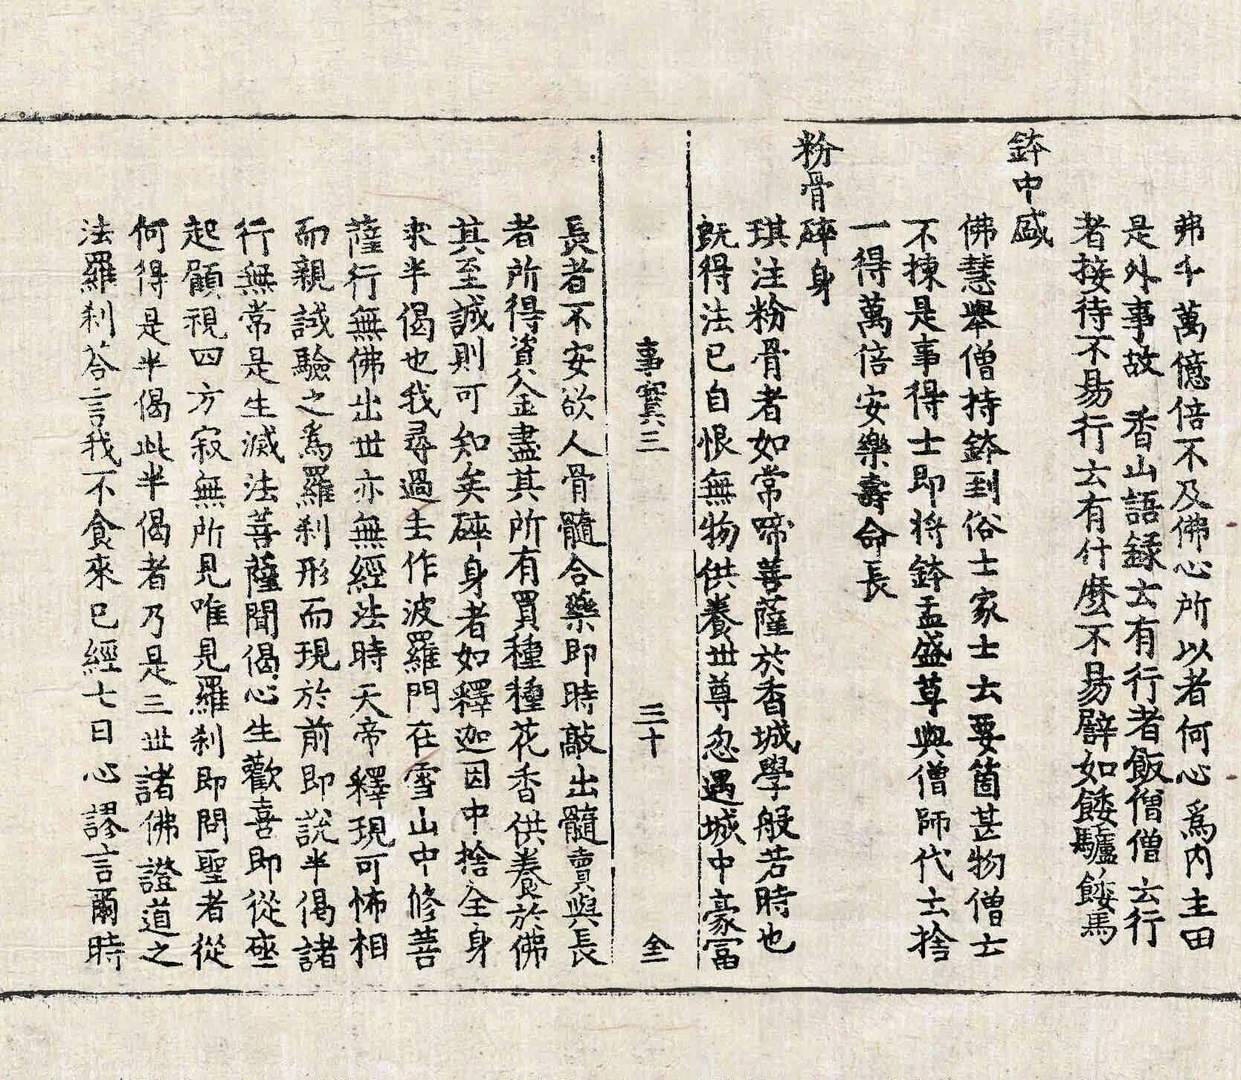 弗千萬億倍不及佛心所以者何心爲內主田
是外事故　香山語録云有行者飯僧僧云行
者接待不易行云有什麼不易譬如餧驢餧馬
鉢中盛
佛慧舉僧持鉢到俗士家士云要箇甚物僧士
不揀是事得士即将鉢盂盛草與僧師代士捨
一得萬倍安樂壽命長
粉骨碎身
琪注粉骨者如常啼菩薩於香城學般若時也
既得法已自恨無物供養世尊忽遇城中豪冨
事實三　三十　全
長者不安欲人骨髓合藥即時敲出髓賣與長
者所得資金盡其所有買種種花香供養於佛
其至誠則可知矣碎身者如釋迦因中捨全身
求半偈也我尋過去作波羅門在雪山中修菩
薩行無佛出世亦無經法時天帝釋現可怖相
而親試驗之爲羅刹形而現於前即說半偈諸
行無常是生滅法菩薩聞偈心生歡喜即從座
起顧視四方寂無所見唯見羅刹即問聖者從
何得是半偈此半偈者乃是三世諸佛證道之
法羅刹荅言我不食來已經七日心謬言爾時